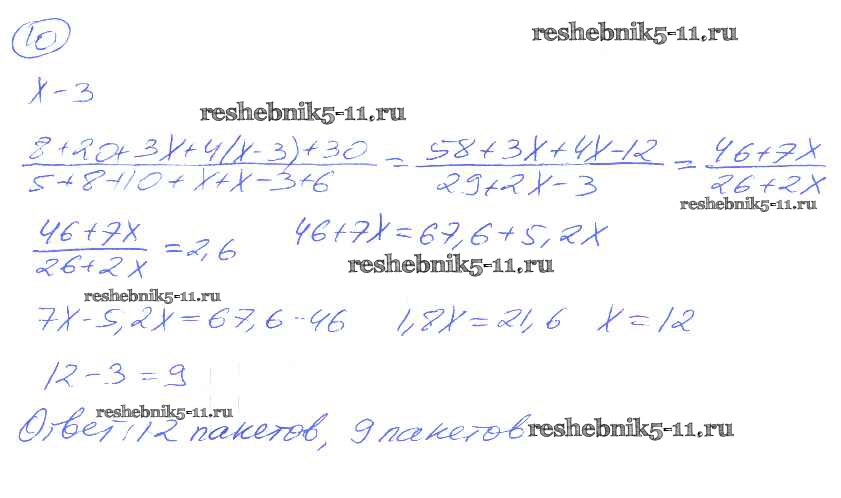 10
reshebnik5-11.ru
x - 3
reshebnik5-11.ru
(8+20+3x+4(x-3)+30)/(5+8+10+x+x-3+6) = (58+3x+4x-12)/(29+2x-3) = (46+7x)/(26+2x)
reshebnik5-11.ru
(46+7x)/(26+2x) = 2,6 46+7x=67,6+5,2x
reshebnik5-11.ru
reshebnik5-11.ru
7x-5,2x=67,6-46 1,8x=21,6 x=12
12-3=9
reshebnik5-11.ru
Ответ: 12 пакетов, 9 пакетов
reshebnik5-11.ru